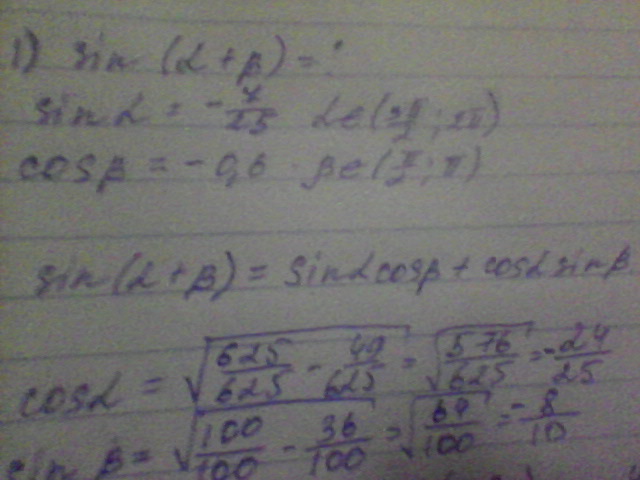 1) sin (α + β) = ?
sin α = - 7/25 α ∈ (3π/2 ; 2π)
cos β = - 0,6 · β ∈ (π/2 ; π)
sin (α + β) = sin α cos β + cos α sin β
cos α = √(625/625 - 49/625) = √(576/625) = - 24/25
sin β = √(100/100 - 36/100) = √(64/100) = - 8/10